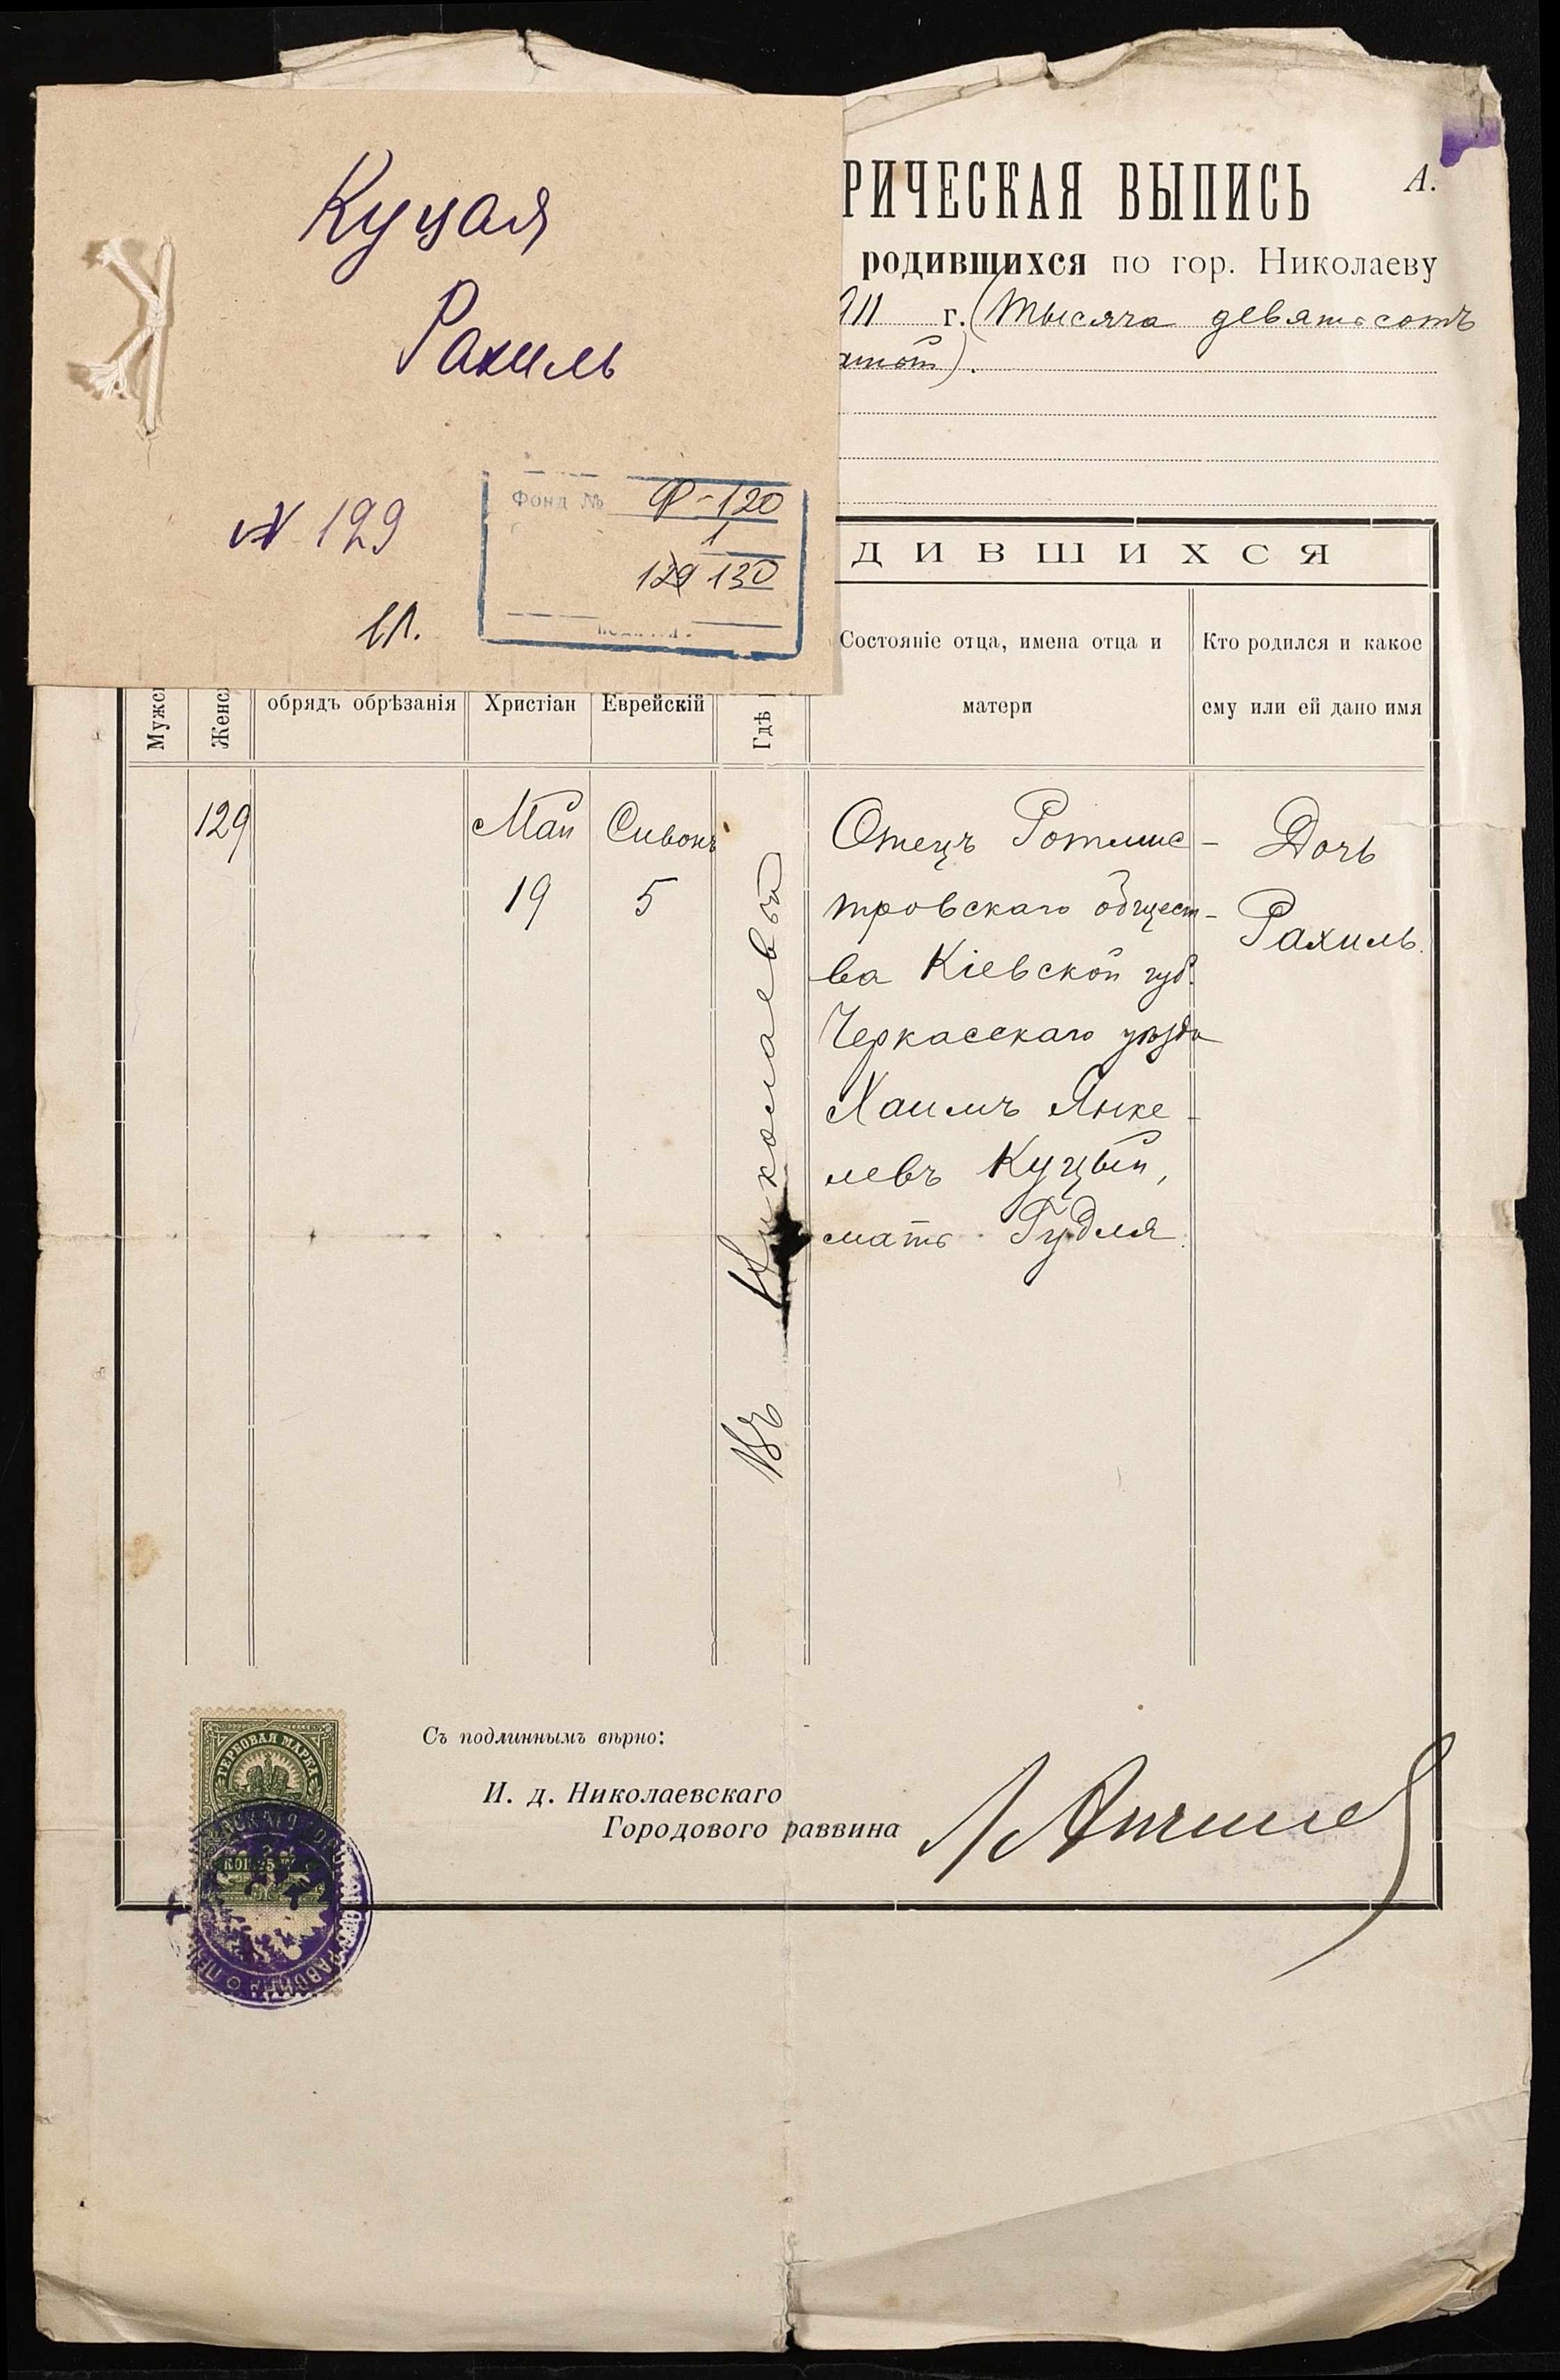 Куцая
Рахиль
№ 129
1л.
Фонд № Ф-120
1
129 130
РИЧЕСКАЯ ВЫПИСЬ
А.
родившихся по гор. Николаеву
911 г. (Тысяча девятьсотъ
атый).
ДИВШИХСЯ
Мужс
Женс
обрядъ обрѣзанія
Христіан
Еврейскій
Гдѣ
Состояніе отца, имена отца и
матери
Кто родился и какое
ему или ей дано имя
129
Май
19
Сивонъ
5
Въ Николаевѣ
Отецъ Ротмис-
тровскаго общест-
ва Кіевской губ.
Черкасскаго уѣзда
Хаимъ Янке-
левъ Куцый,
мать Гудля.
Дочь
Рахиль.
ГЕРБОВАЯ МАРКА
Съ подлиннымъ вѣрно:
И. д. Николаевскаго
Городового раввина